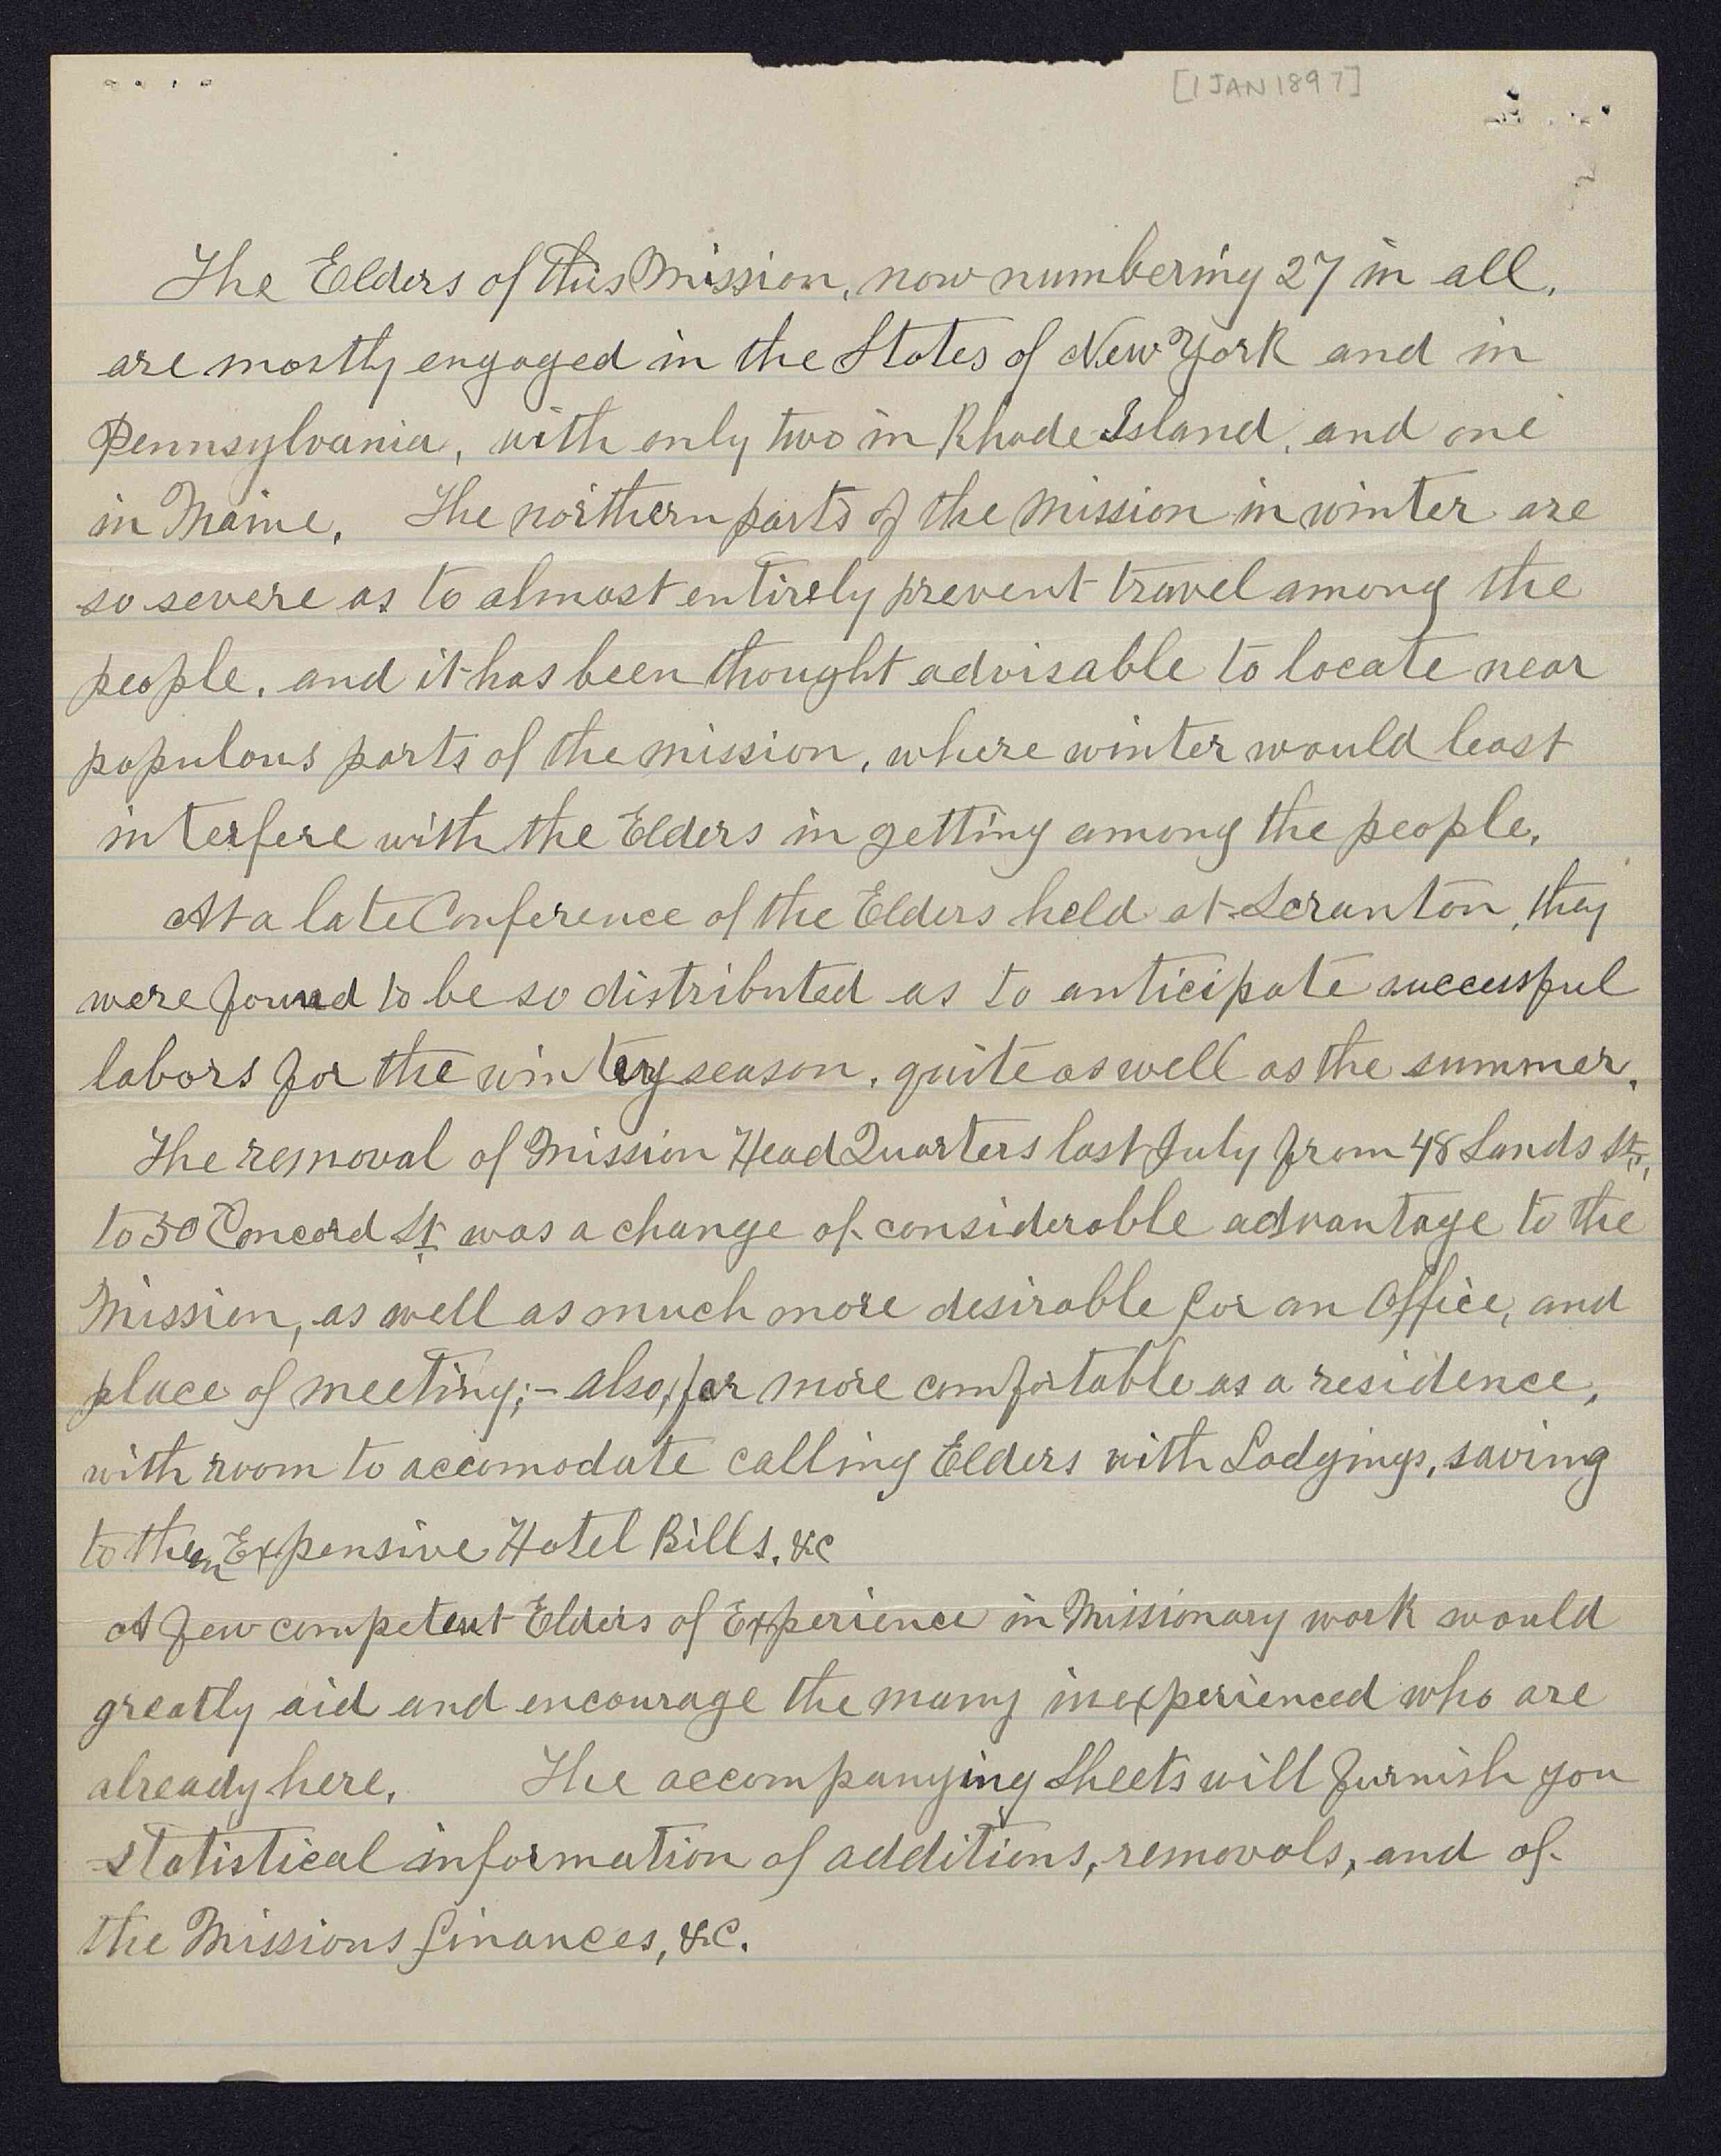 [1 JAN 1897]
The Elders of this Mission, now numbering 27 in all,
are mostly engaged in the States of New York and in
Pennsylvania, with only two in Rhode Island, and one
in Maine. The northern parts of the Mission in winter are
so severe as to almost entirely prevent travel among the
people, and it has been thought advisable to locate near
populous parts of the mission, where winter would least
interfere with the Elders in getting among the people.
At a late Conference of the Elders held at Scranton, they
were found to be so distributed as to anticipate successful
labors for the wintery season, quite as well as the summer.
The removal of Mission Head Quarters last July from 48 Sands St,
to 50 Concord St was a change of considerable advantage to the
Mission, as well as much more desirable for an Office, and
place of meeting; - also, far more comfortable as a residence,
with room to accomodate calling Elders with Lodgings, saving
to them Expensive Hotel Bills, &c
A few competent Elders of Experience in Missionary work would
greatly aid and encourage the many inexperienced who are
already here. The accompanying Sheets will furnish you
statistical information of additions, removals, and of
the Missions finances, &c.